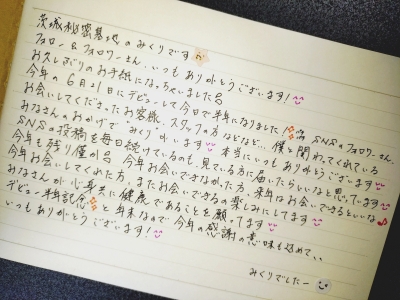 茨城秘密基地のみくりです
フォロー&フォロワーさん、いつもありがとうございます!
お久しぶりのお手紙になっちゃいました
今年の6月21日にデビューして今日で半年になりました! SNSのフォロワーさん、
お会いしてくださったお客様、スタッフの方などなど… 僕と関わってくれている
みなさんのおかげで"みくり"がいます 本当にいつもありがとうございます
SNSの投稿を毎日続けているのも、見ている方に届いたらいいなと思っています
今年も残り僅か 今年お会いできなかった方、来年はお会いできるといいな
今年お会いしてくれた方、またお会いできるの楽しみにしてます
みなさんが心身共に健康であることを願ってます
デビュー半年記念と年末なので今年の感謝の意味も込めて、、
いつもありがとうございます!
みくりでしたー